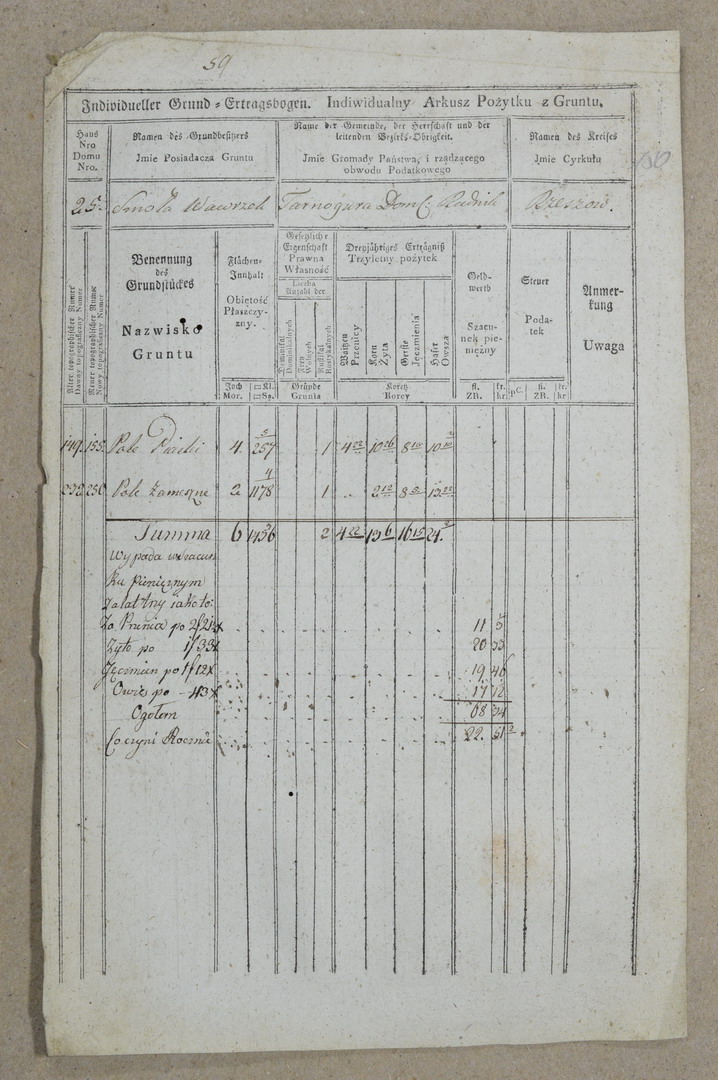 59
Individueller Grund-Ertragsbogen. Indiwidualny Arkusz Pożytku z Gruntu.
Haus Nro Domu Nro.
Namen des Grundbesitzers
Jmie Posiadacza Gruntu
Name der Gemeinde, der Herrschaft und der leitenden Bezirks-Obrigkeit.
Jmie Gromady Państwa, i rządzącego obwodu Podatkowego
Namen des Kreises
Jmie Cyrkułu
25. Smoła Wawrzek Tarnogura Dom Rudnik Rzeszow.
Alter topographischer Numer
Dawny topograficzny Numer
Neuer topographischer Nume
Nowy topograficzny Numer
Benennung des Grundstückes
Nazwisko Gruntu
Flächen-Innhalt
Obiętość Płaszczyzny.
Joch Mor.
□ Kl. □ Są.
Gesetzliche Eigenschaft
Prawna Własność
Liczba
Anzahl der
Dominikalnych
Wolnych
Rustykalnych
Gründe
Grunta
Dreyjähriges Erträgniß
Trzyletny pożytek
Waitzen Przenicy
Korn Żyta
Gerste Jęczmienia
Hafer Owsza
Koretz
Korcy
Geldwerth
Szacunek pieniężny
fl. ZR.
kr. kr.
Steuer
Podatek
pC.
fl. ZR.
kr. kr
Anmerkung
Uwaga
149. 155. Pole Piaski 4. 257 1 4 22 10 26 8 10 10
232 250 Pole Zamesne 2 1178 1 .. 2 12 8 5 13 22
Summa 6 1436 2 4 22 13 6 16 15 24.
Wypada w racun
ku pieniężnym
Za Prenia po 2f 21x 11 5
Żyto po 1f 33x 20 33
Jęczmien po 1f 12x 19 46
Owies po - 43x 17 12
Ogołem 68 34
Co czyni Rocznie 22. 51